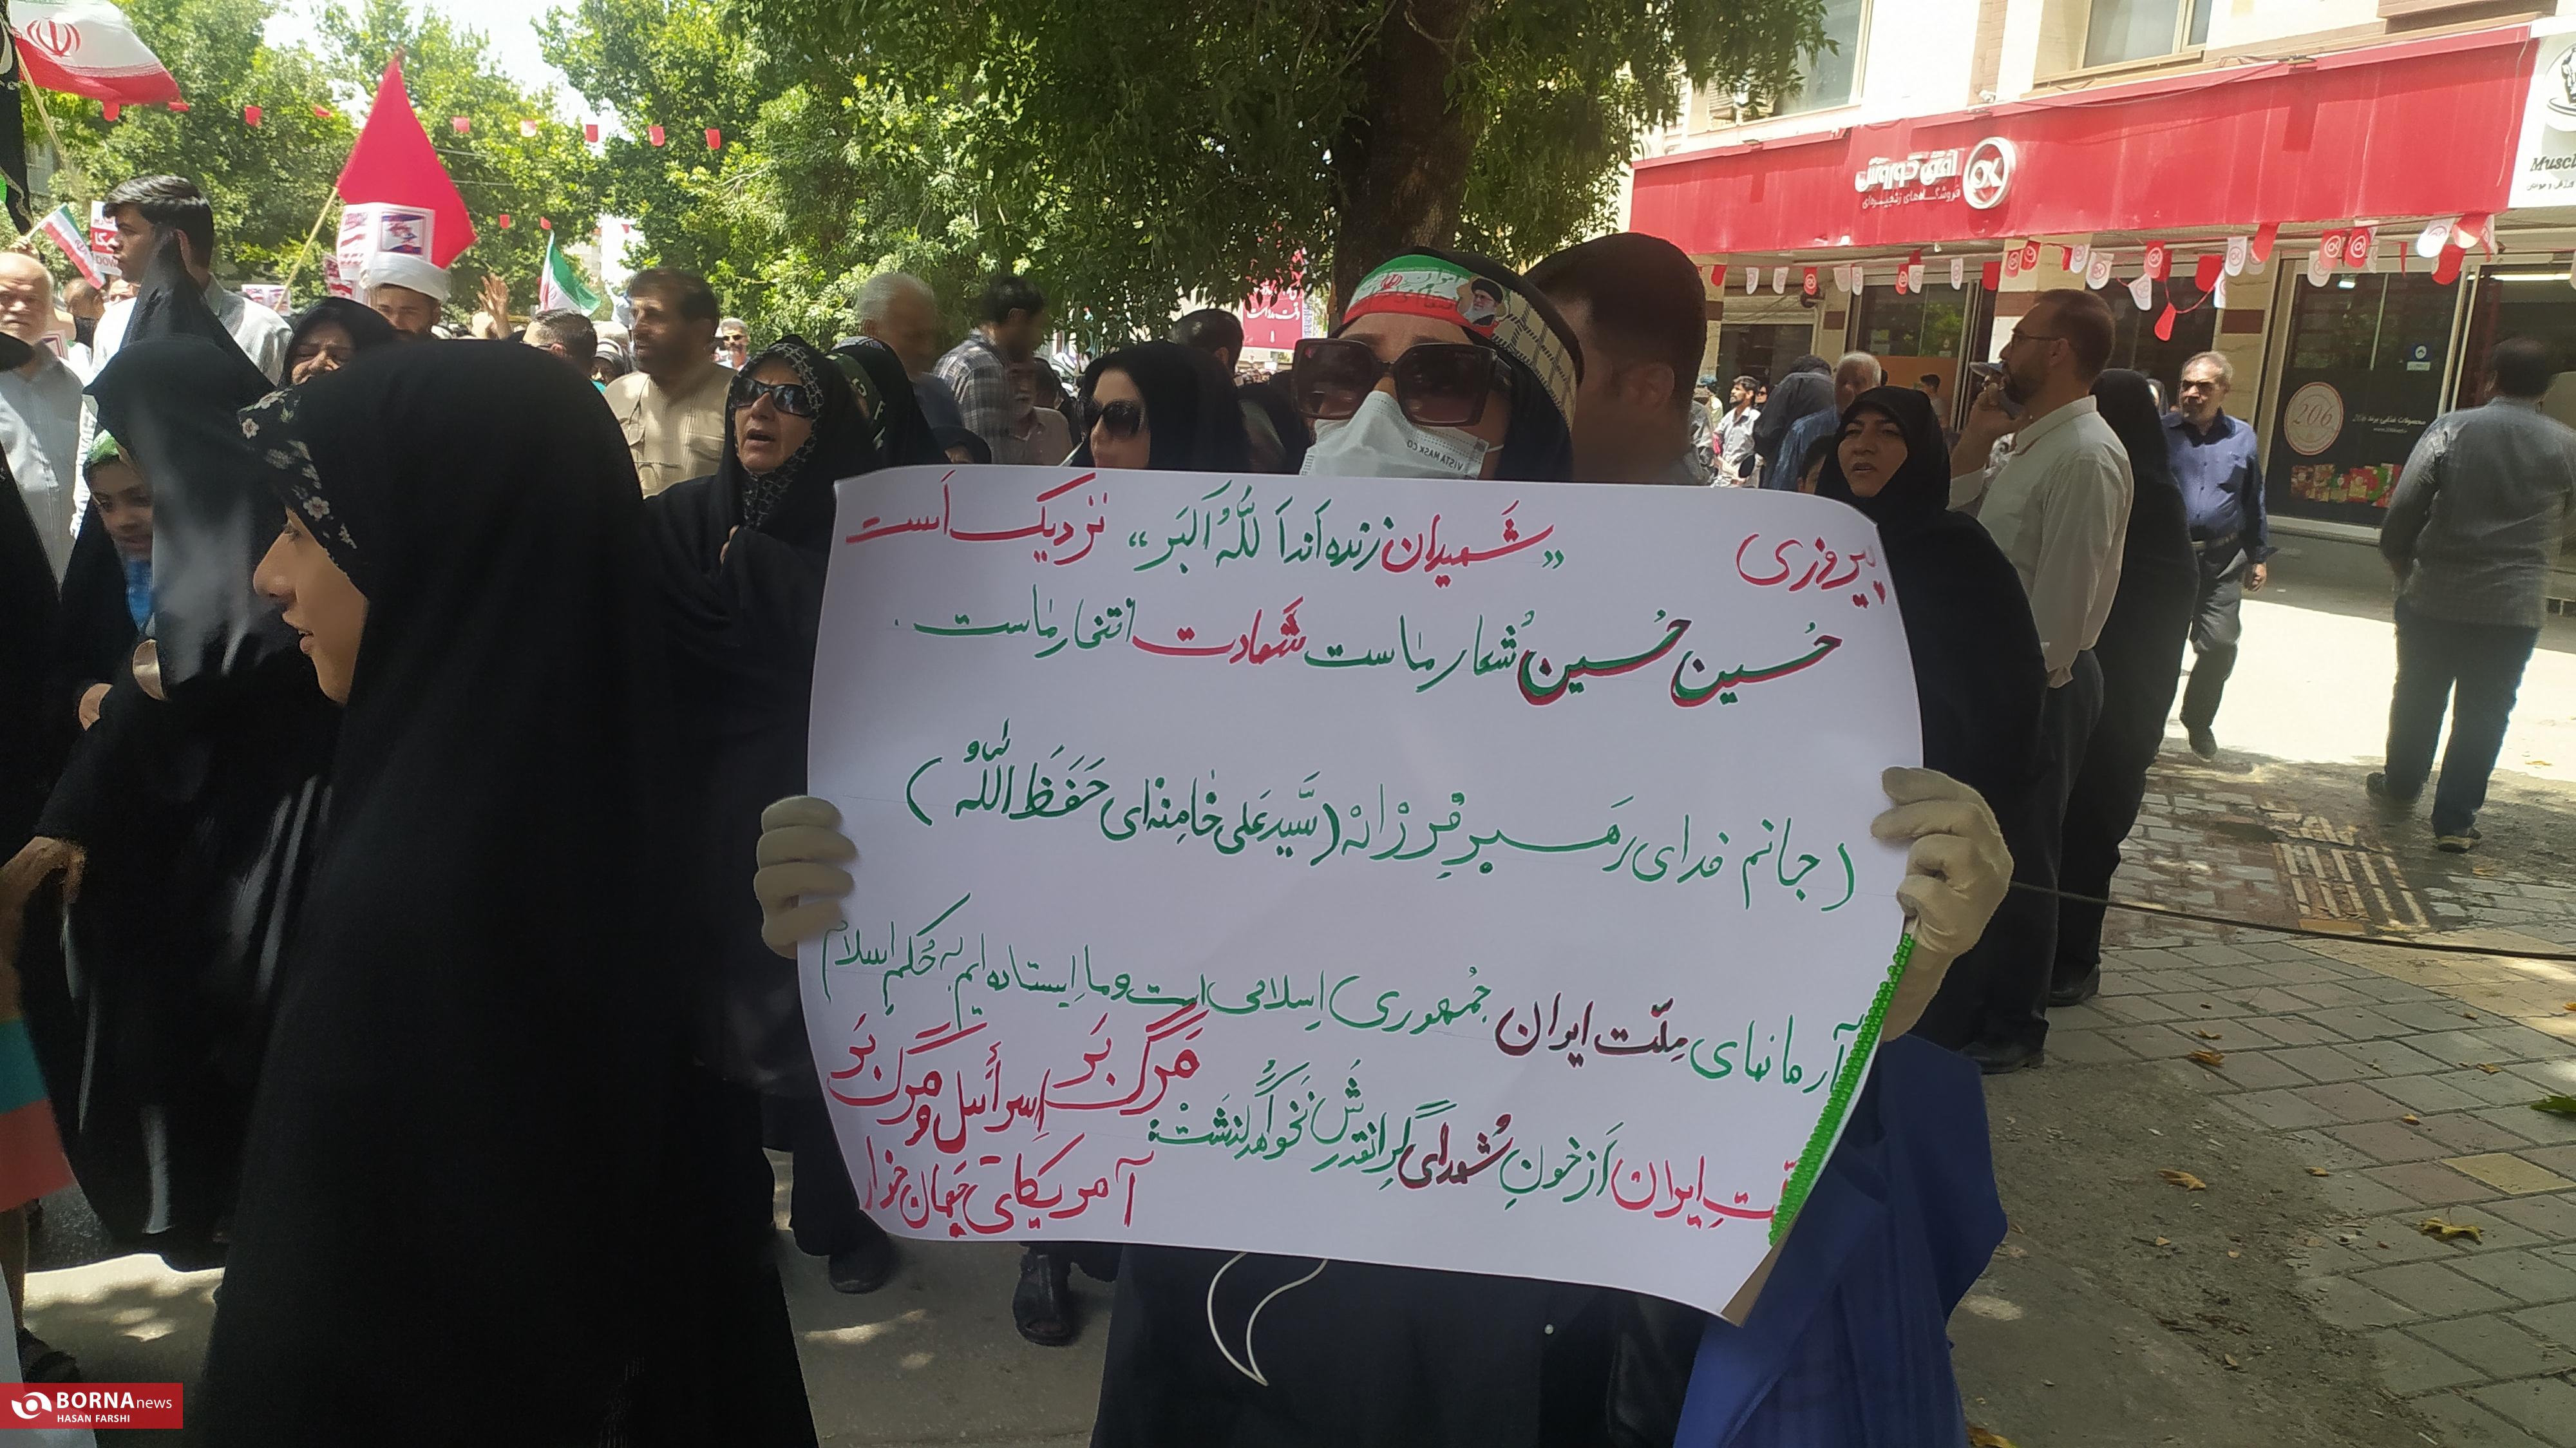 پیروزی «شهیدان زنده اند اَللّهُ اَکبَر» نزدیک اَست
حُسین حُسین شُعار ماست شَهادت افتخار ماست.
(جانم فدای رَهبر فَرزانه (سَّید عَلی خامِنه‌ای حَفَظَ اللّهُ)
آرمانهای مِلّت ایران جُمهوری اِسلامی است و ما اِیستاده ایم به حُکم اِسلام
ملّتِ ایران اَز خونِ شُهدای گرانقَدرَش نَخواهَد گُذشت
مَرگ بَر اِسرائیل و مَرگ بَر
آمریکای جَهان خوار
افق کوروش
فروشگاه‌های زنجیره‌ای
Muscl
VISTA MASK CO
206
BORNA news
HASAN FARSHI